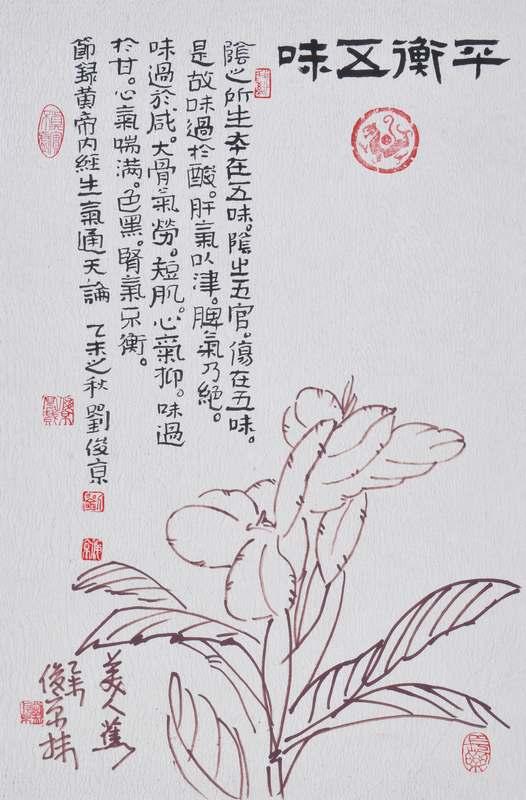 平衡五味
隂之所生本在五味。隂之五官。傷在五味。
是故味過於酸。肝氣以津。脾氣乃絕。
味過於咸。大骨氣勞。短肌。心氣抑。味過
於甘。心氣喘満。色黑。腎氣不衡。
節録黄帝内經生氣通天論 乙未之秋劉俊京
美人蕉
乙未
俊京抹